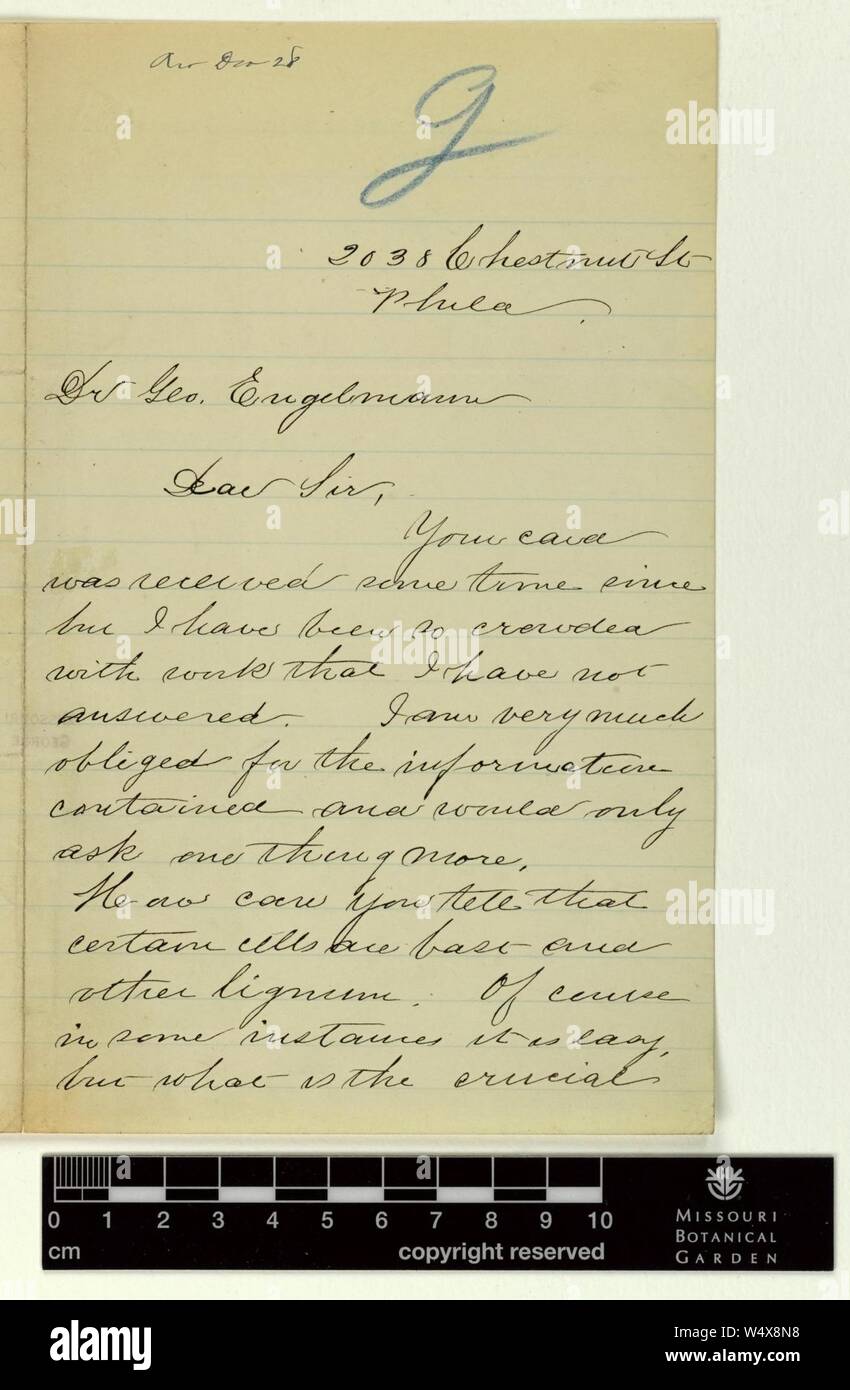 Dec 28
G
2038 Chestnut St
Phila
Dr Geo. Engelmann
Dear Sir,
Your card
was received some time since
but I have been so crowded
with work that I have not
answered. I am very much
obliged for the information
contained and would only
ask one thing more.
How can you tell that
certain cells are bast and
other lignum. Of course
in some instances it is easy,
but what is the crucial
0 1 2 3 4 5 6 7 8 9 10
cm
copyright reserved
MISSOURI
BOTANICAL
GARDEN
alamy
alamy
alamy
alamy
Image ID: W4X8N8
www.alamy.com